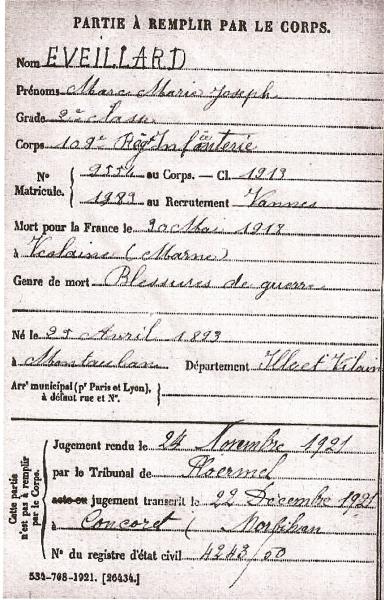 PARTIE À REMPLIR PAR LE CORPS.
Nom EVEILLARD
Prénoms Marc Marie Joseph
Grade 2e classe
Corps 109e Régt Infanterie
N° Matricule. { 9554 au Corps. — Cl. 1913
1989 au Recrutement Vannes
Mort pour la France le 30 Mai 1918
à (Marne)
Genre de mort Blessures de guerre
Né le 25 Avril 1893
à Montauban Département Ille et Vilaine
Arrt municipal (pr Paris et Lyon), à défaut rue et N°.
Cette partie n'est pas à remplir par le Corps.
Jugement rendu le 24 Novembre 1921
par le Tribunal de Ploermel
acte ou jugement transcrit le 22 Décembre 1921
à Concoret (Morbihan
N° du registre d'état civil 4243/00
534-708-1921. [26434.]